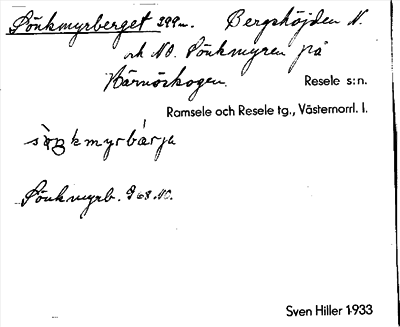 Sönkmyrberget 299 m. Bergshöjden N.
och NO. Sönkmyren på
Kärnöskogen. Resele s:n.
Ramsele och Resele tg., Västernorrl. l.
Sönkmyrb. G 68. NO.
Sven Hiller 1933